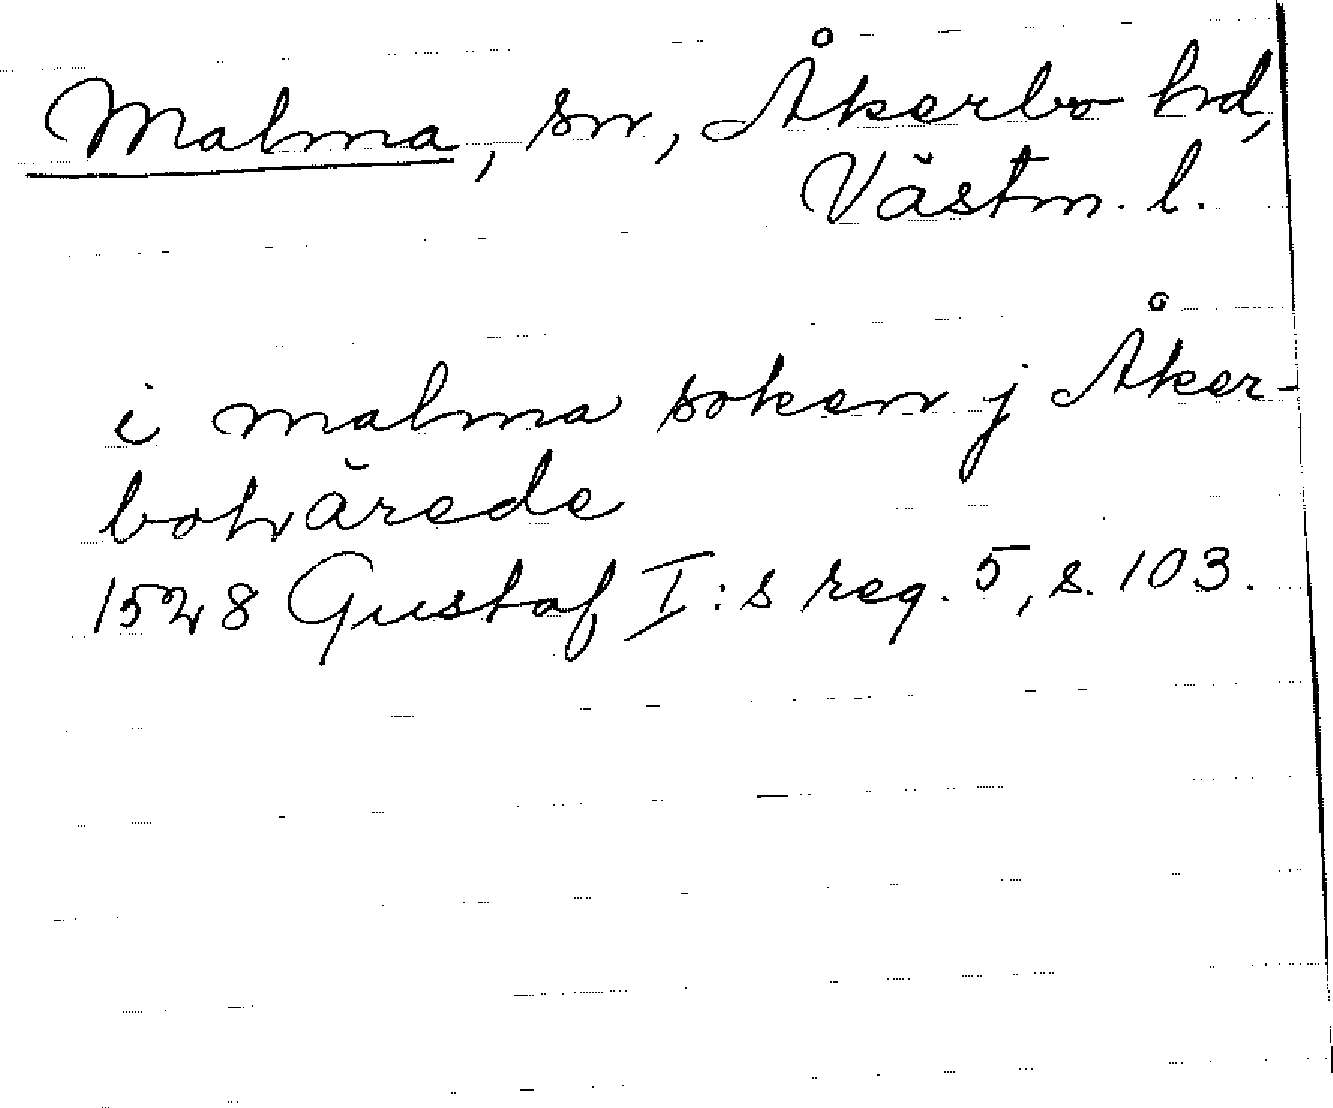 Malma, sn, Åkerbo hd,
Västm. l.
i malma soken j Åker-
bohärede
1528 Gustaf I:s reg. 5, s. 103.